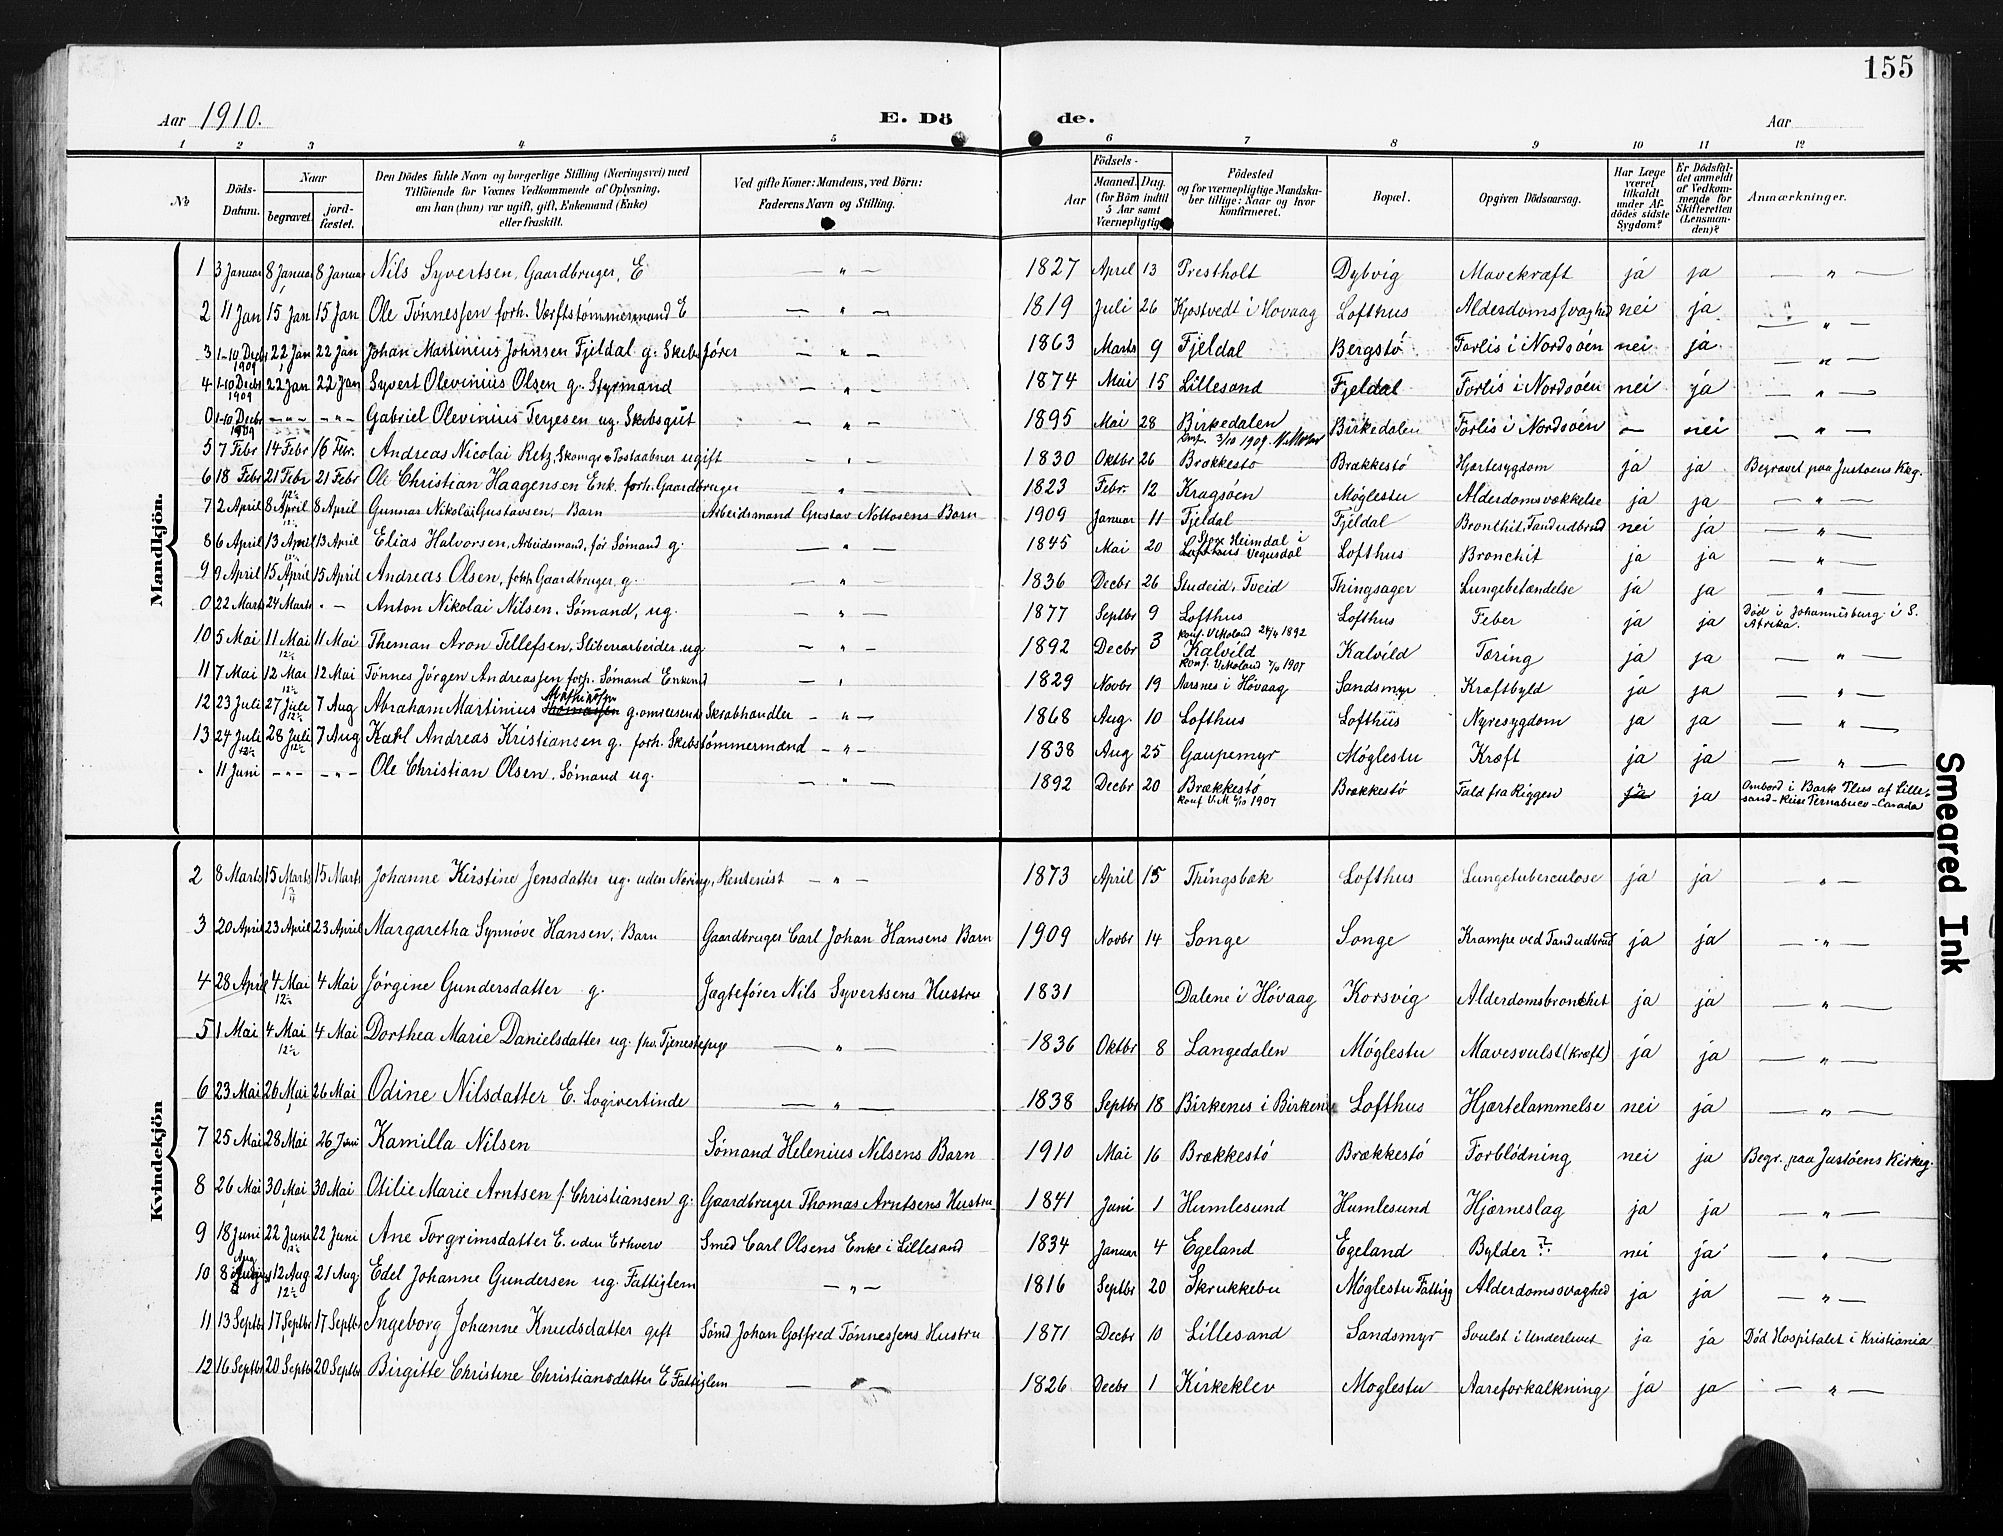 155
Aar 1910. E. Dö de. Aar
1 2 3 4 5 6 7 8 9 10 11 12
No
Döds-Datum.
Naar
begravet.
jord-fæstet.
Den Dödes fulde Navn og borgerlige Stilling (Næringsvei) med
Tilföiende for Voxnes Vedkommende af Oplysning,
om han (hun) var ugift, gift, Enkemand (Enke)
eller fraskilt.
Ved gifte Koner: Mandens, ved Börn:
Faderens Navn og Stilling.
Födsels-
Aar
Maaned. Dag.
(for Börn indtil
5 Aar samt
Værnepligtige)
Födested
og for værnepligtige Mandska-
ber tillige: Naar og hvor
konfirmeret.
Bopæl.
Opgiven Dödsaarsag.
Har Læge
været
tilkaldt
under Af-
dödes sidste
Sygdom?
Er Dödsfal-
det anmeldt
af Vedkom-
mende for
Skifteretten
(Lensman-
den)?
Anmærkninger.
Mandkjön.
1 3 Januar 8 Januar 8 Januar Nils Syvertsen, Gaardbruger, E — " — 1827 April 13 Prestholt Dybvig Mavekræft ja ja — " —
2 11 Jan 15 Jan 15 Jan Ole Tønnessen forh. Værftstømmermand E — " — 1819 Juli 26 Kjøstvedt i Høvaag Lofthus Alderdomssvaghed nei ja — " —
3 1-10 Decbr 1909 22 Jan 22 Jan Johan Martinius Johnsen Fjeldal g. Skibsfører — " — 1863 Marts 9 Fjeldal Bergstø Forlis i Nordsøen nei ja — " —
4 1-10 Decbr 1909 22 Jan 22 Jan Syvert Olevinius Olsen g. Styrmand — " — 1874 Mai 15 Lillesand Fjeldal Forlis i Nordsøen nei ja — " —
0 1-10 Decbr 1909 — " — — " — Gabriel Olevinius Terjesen ug. Skibsgut — " — 1895 Mai 28 Birkedalen 3/10 1909. V. Moland Birkedalen Forlis i Nordsøen — nei — " —
5 7 Febr 14 Febr 16 Febr. Andreas Nicolai Retz, Skomgr & Postaabner ugift — " — 1830 Oktbr 26 Brækkestø Brækkestø Hjertesygdom ja ja Begravet paa Justøens Kkg.
6 18 Febr 21 Febr 21 Febr Ole Christian Haagensen Enk. forh. Gaardbruger — " — 1823 Febr. 12 Kragsøen Møglestu Alderdomsvækkelse ja ja — " —
7 2 April 8 April 8 April Gunnar Nikolai Gustavsen, Barn Arbeidsmand Gustav Nottosens Barn 1909 Januar 11 Fjeldal Fjeldal Bronchit. Tandudbrud nei ja — " —
8 6 April 13 April 13 April Elias Halvorsen, Arbeidsmand, før Sømand g. — " — 1845 Mai 20 Heimdal i Vegusdal Lofthus Bronchit ja ja — " —
9 9 April 15 April 15 April Andreas Olsen, forh. Gaardbruger, g. — " — 1836 Decbr 26 Studeid, Tveid Thingsager Lungebetændelse ja ja — " —
0 22 Marts 24 Marts — Anton Nikolai Nilsen. Sømand, ug. — " — 1877 Septbr 9 Lofthus konf. V. Moland 24/4 1892 Lofthus Feber ja ja Død i Johannisburg i S. Afrika.
10 5 Mai 11 Mai 11 Mai Theman Aron Tellefsen, Sliberarbeider ug — " — 1892 Decbr 3 Kalvild konf. V. Moland 1907 Kalvild Tæring ja ja — " —
11 7 Mai 12 Mai 12 Mai Tønnes Jørgen Andreassen forh. Sømand Enkemd — " — 1829 Novbr 19 Aarsnes i Høvaag Sandsmyr Kræftbyld ja ja — " —
12 23 Juli 27 Juli 7 Aug Abraham Martinius Mathiassen g. omreisende Skrabhandler — " — 1868 Aug. 10 Lofthus Lofthus Nyresygdom ja ja — " —
13 24 Juli 28 Juli 7 Aug Karl Andreas Kristiansen g. forh. Skibstømmermænd — " — 1838 Aug 25 Gaupemyr Møglestu Kræft ja ja — " —
11 Juni — " — — " — Ole Christian Olsen, Sømand ug. — " — 1892 Decbr 20 Brækkestø konf V.M 1907 Brækkestø Fald fra Riggen ja ja Ombord i Bark Plus af Lille-
sand - Reise Pernabuco - Canada
Kvindekjön
2 8 Marts 15 Marts 15 Marts Johanne Kirstine Jensdatter ug. uden Næring, Rentenist — " — 1873 April 15 Thingsbæk Lofthus Lungetuberculose ja ja — " —
3 20 April 23 April 23 April Margaretha Synnøve Hansen, Barn Gaardbruger Carl Johan Hansens Barn 1909 Novbr 14 Songe Songe Krampe ved Tandudbrud ja ja — " —
4 28 April 4 Mai 12½ 4 Mai Jørgine Gundersdatter g. Jagtefører Nils Syvertsens Hustru 1831 Dalene i Høvaag Korsvig Alderdomsbronchet ja ja — " —
5 1 Mai 4 Mai 12½ 4 Mai Dorthea Marie Danielsdatter ug. fhv. Tjenestepige — " — 1836 Oktbr 8 Langedalen Møglestu Mavesvulst (kræft) ja ja — " —
6 23 Mai 26 Mai 26 Mai Odine Nilsdatter E. Logivertinde — " — 1838 Septbr 18 Birkenes i Birkenes Lofthus Hjertelammelse nei ja — " —
7 25 Mai 28 Mai 26 Juni Kamilla Nilsen Sømand Helenius Nilsens Barn 1910 Mai 16 Brækkestø Brækkestø Forblødning nei ja Begr. paa Justøens Kirkeg.
8 26 Mai 30 Mai 30 Mai Otilie Marie Arntsen f. Christiansen g: Gaardbruger Thomas Arntsens Hustru 1841 Juni 1 Humlesund Humlesund Hjerneslag ja ja — " —
9 18 Juni 22 Juni 22 Juni Ane Torgrimsdatter E. uden Erhverv Smed Carl Olsens Enke i Lillesand 1834 Januar 4 Egeland Egeland Bylder ?. nei ja — " —
10 8 Aug 12 Aug 12½ 21 Aug Edel Johanne Gundersen ug. Fattiglem — " — 1816 Septbr 20 Skrukkebu Møglestu Fattigg Alderdomssvaghed ja ja — " —
11 13 Septbr 17 Septbr 17 Septbr Ingeborg Johanne Knudsdatter gift Sømd Johan Gotfred Tønnessens Hustru 1871 Decbr 10 Lillesand Sandsmyr Svulst i Underlivet ja ja Død Hospitalet i Kristiania
12 16 Septbr 20 Septbr 20 Septbr Birgitte Christine Christiansdatter E Fattiglem — " — 1826 Decbr 1 Kirkeklev Møglestu Aareforkalkning ja ja — " —
Smeared Ink